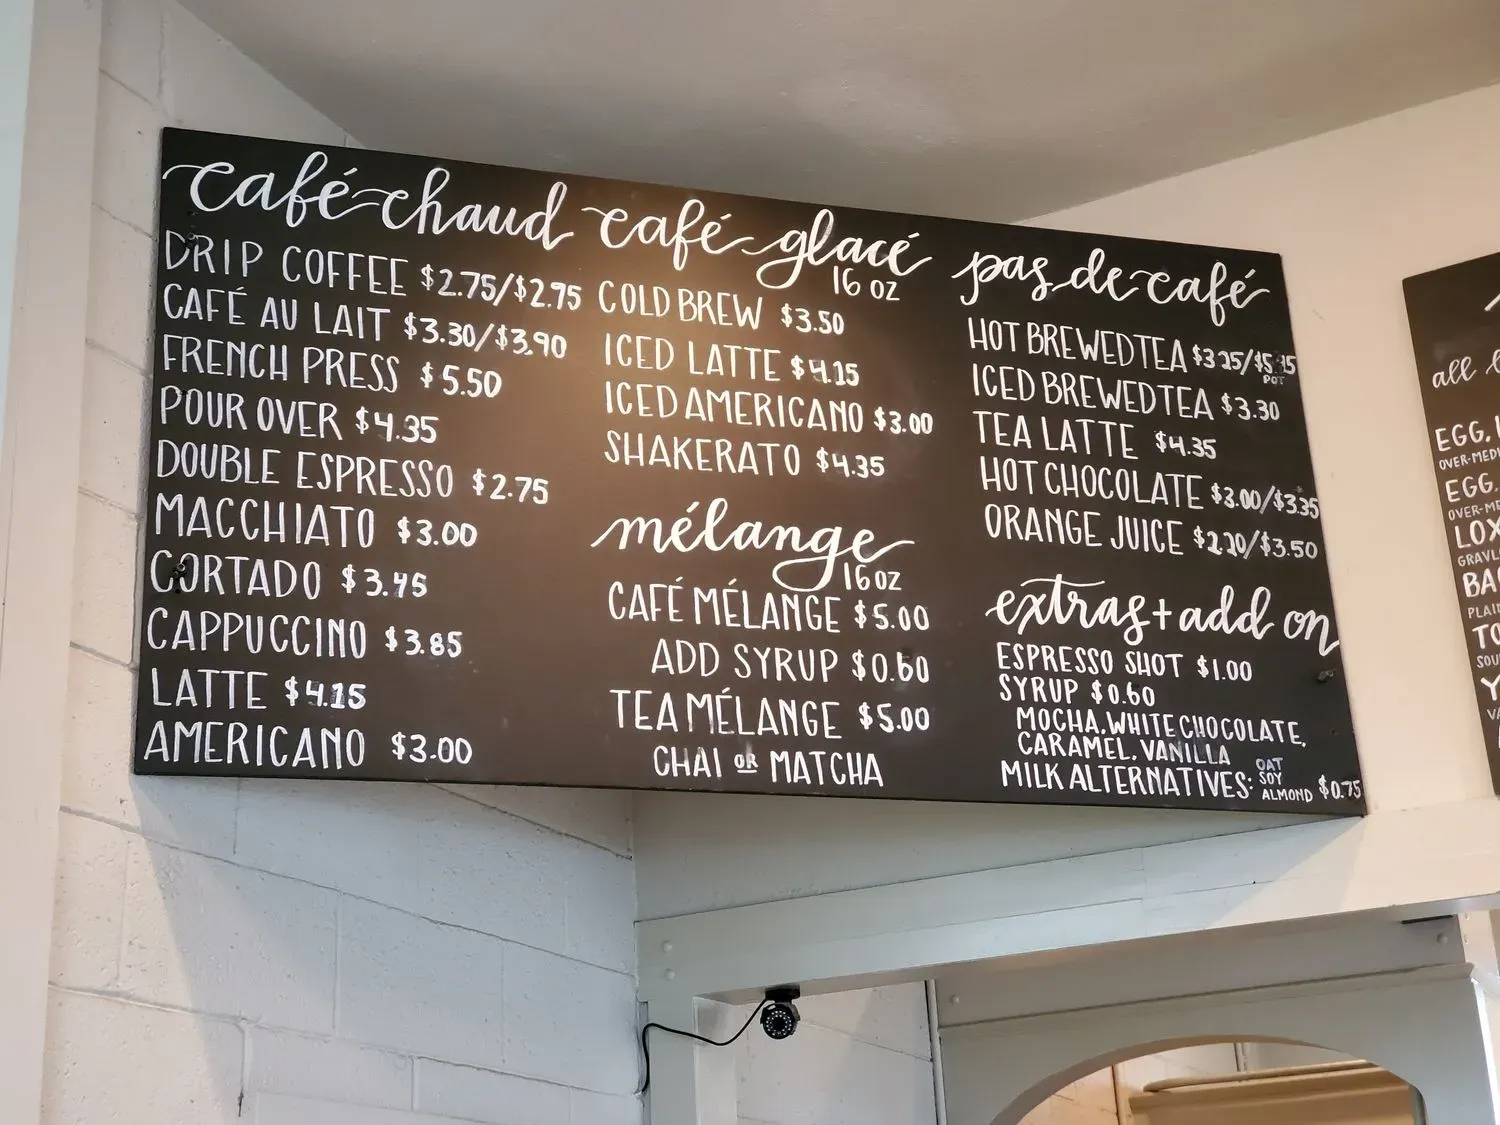 café chaud
DRIP COFFEE $2.75/$2.95
CAFÉ AU LAIT $3.30/$3.90
FRENCH PRESS $5.50
POUR OVER $4.35
DOUBLE ESPRESSO $2.75
MACCHIATO $3.00
CORTADO $3.45
CAPPUCCINO $3.85
LATTE $4.15
AMERICANO $3.00
café glacé
16 OZ
COLD BREW $3.50
ICED LATTE $4.15
ICED AMERICANO $3.00
SHAKERATO $4.35
mélange
16 OZ
CAFÉ MÉLANGE $5.00
ADD SYRUP $0.60
TEA MÉLANGE $5.00
CHAI OR MATCHA
pas de café
HOT BREWED TEA
POT
ICED BREWED TEA $3.30
TEA LATTE $4.35
HOT CHOCOLATE $3.00/$3.35
ORANGE JUICE $2.20/$3.50
extras + add on
ESPRESSO SHOT $1.00
SYRUP $0.60
MOCHA, WHITE CHOCOLATE,
CARAMEL, VANILLA
MILK ALTERNATIVES: OAT SOY ALMOND $0.75
all
EGG,
EGG,